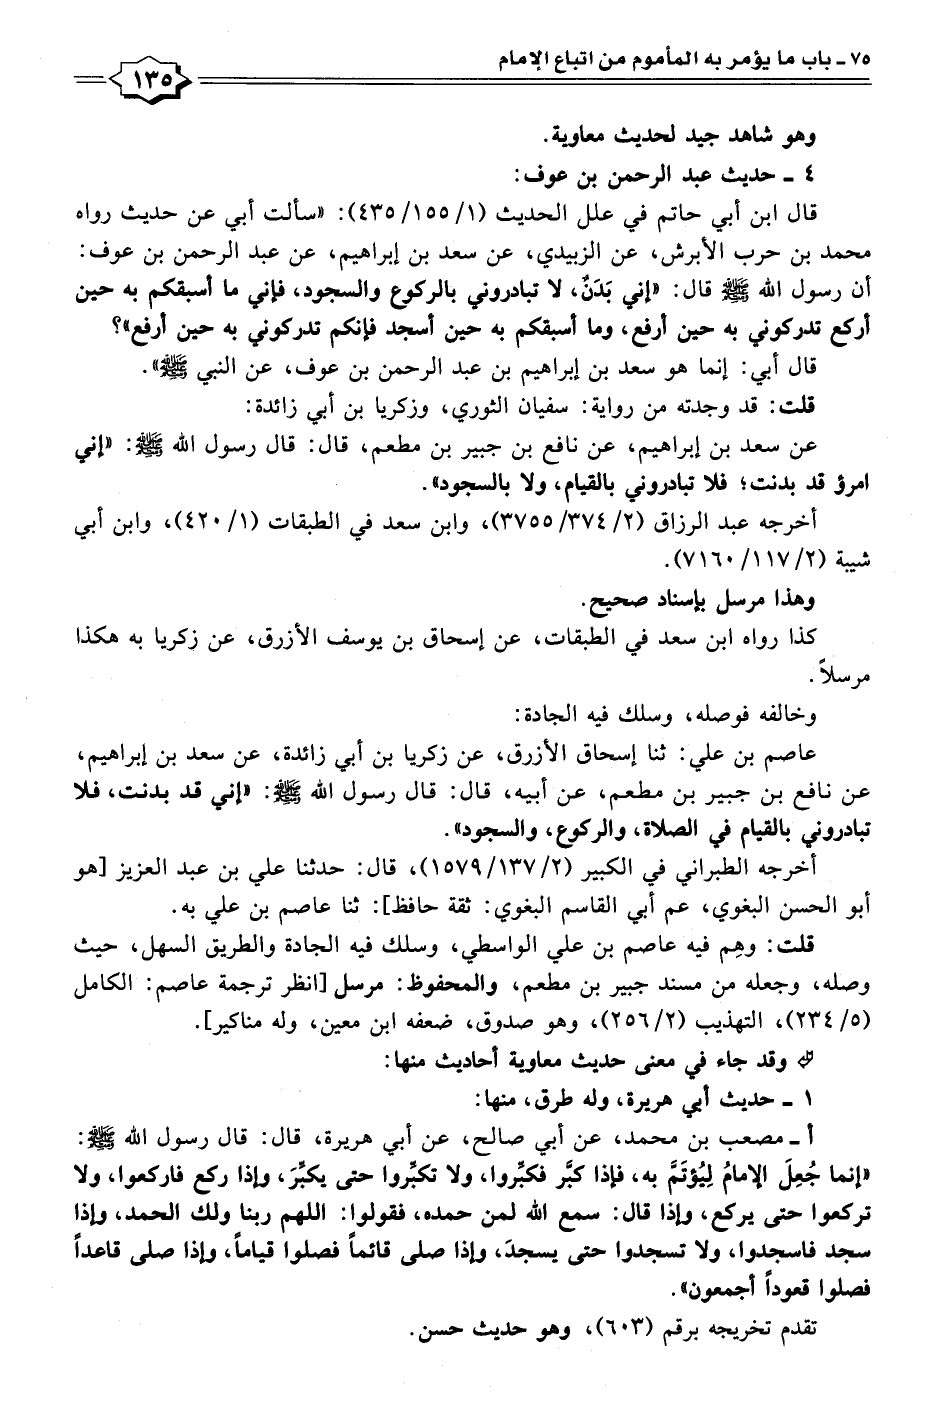 ٧٥ - باب ما يؤمر به المأموم من اتباع الإمام
١٣٥
وهو شاهد جيد لحديث معاوية.
٤ - حديث عبد الرحمن بن عوف:
قال ابن أبي حاتم في علل الحديث (٤٣٥/١٥٥/١): «سألت أبي عن حديث رواه
محمد بن حرب الأبرش، عن الزبيدي، عن سعد بن إبراهيم، عن عبد الرحمن بن عوف:
أن رسول الله ﷺ قال: «إني بَدَنٌ، لا تبادروني بالركوع والسجود، فإني ما أسبقكم به حين
أركع تدركوني به حين أرفع، وما أسبقكم به حين أسجد فإنكم تدركوني به حين أرفع»؟
قال أبي: إنما هو سعد بن إبراهيم بن عبد الرحمن بن عوف، عن النبي ﷺ».
قلت: قد وجدته من رواية: سفيان الثوري، وزكريا بن أبي زائدة:
عن سعد بن إبراهيم، عن نافع بن جبير بن مطعم، قال: قال رسول الله ﷺ: «إني
امرؤ قد بدنت؛ فلا تبادروني بالقيام، ولا بالسجود».
أخرجه عبد الرزاق (٣٧٥٥/٣٧٤/٢)، وابن سعد في الطبقات (٤٢٠/١)، وابن أبي
شيبة (٧١٦٠/١١٧/٢).
وهذا مرسل بإسناد صحيح.
كذا رواه ابن سعد في الطبقات، عن إسحاق بن يوسف الأزرق، عن زكريا به هكذا
مرسلاً.
وخالفه فوصله، وسلك فيه الجادة:
عاصم بن علي: ثنا إسحاق الأزرق، عن زكريا بن أبي زائدة، عن سعد بن إبراهيم،
عن نافع بن جبير بن مطعم، عن أبيه، قال: قال رسول الله ﷺ: «إني قد بدنت، فلا
تبادروني بالقيام في الصلاة، والركوع، والسجود».
أخرجه الطبراني في الكبير (١٥٧٩/١٣٧/٢)، قال: حدثنا علي بن عبد العزيز [هو
أبو الحسن البغوي، عم أبي القاسم البغوي: ثقة حافظ]: ثنا عاصم بن علي به.
قلت: وهِم فيه عاصم بن علي الواسطي، وسلك فيه الجادة والطريق السهل، حيث
وصله، وجعله من مسند جبير بن مطعم، والمحفوظ: مرسل [انظر ترجمة عاصم: الكامل
(٢٣٤/٥)، التهذيب (٢٥٦/٢)، وهو صدوق، ضعفه ابن معين، وله مناكير].
وقد جاء في معنى حديث معاوية أحاديث منها:
١ - حديث أبي هريرة، وله طرق، منها:
أ - مصعب بن محمد، عن أبي صالح، عن أبي هريرة، قال: قال رسول الله ﷺ:
«إنما جُعِلَ الإمامُ لِيُؤتَمَّ به، فإذا كبَّر فكبِّروا، ولا تكبِّروا حتى يكبِّرَ، وإذا ركع فاركعوا، ولا
تركعوا حتى يركع، وإذا قال: سمع الله لمن حمده، فقولوا: اللهم ربنا ولك الحمد، وإذا
سجد فاسجدوا، ولا تسجدوا حتى يسجدَ، وإذا صلى قائماً فصلوا قياماً، وإذا صلى قاعداً
فصلوا قعوداً أجمعون».
تقدم تخريجه برقم (٦٠٣)، وهو حديث حسن.